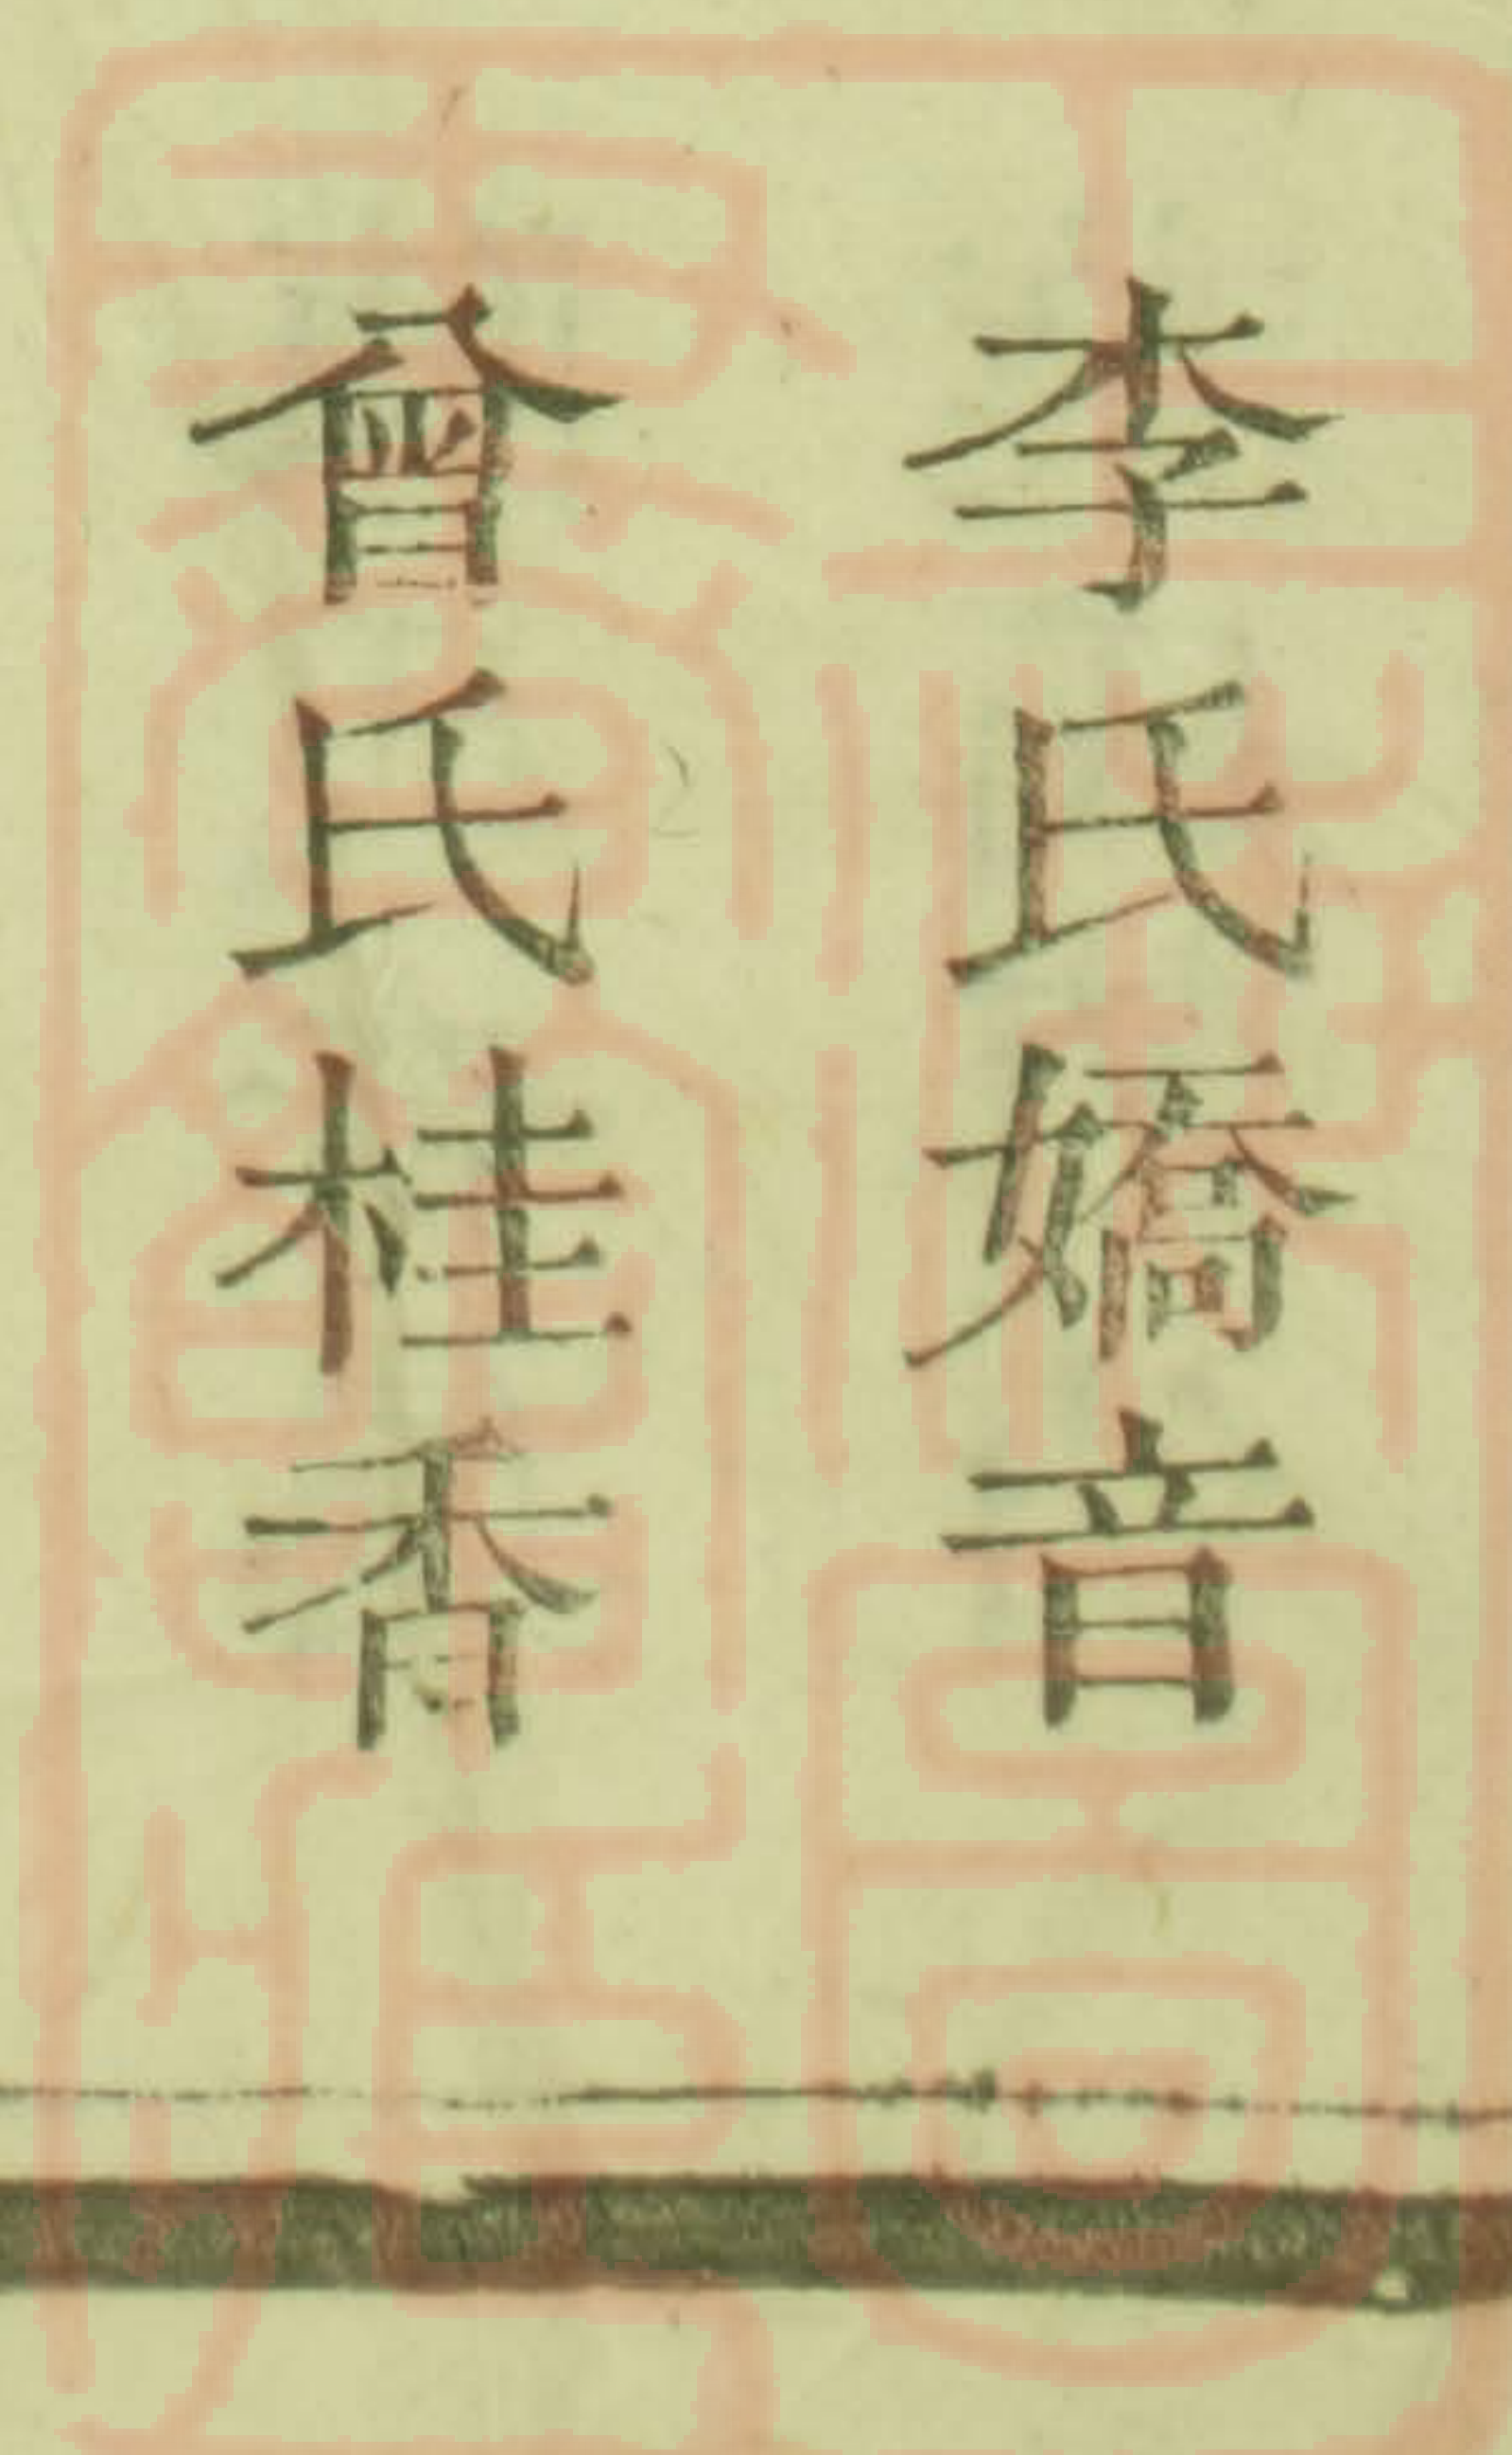 李氏嬌音
曾氏桂香